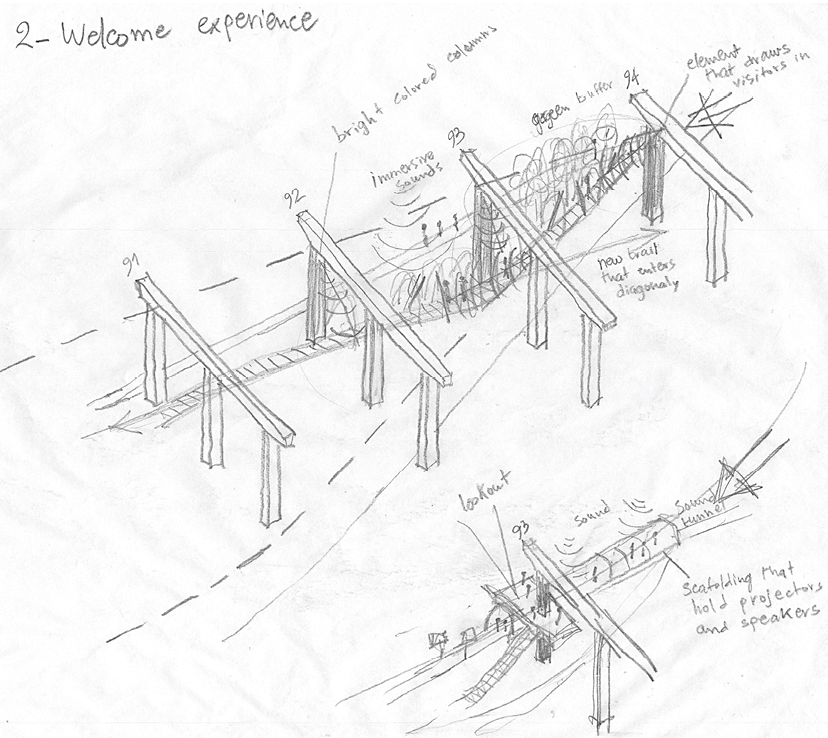 2- Welcome experience
bright colored columns
element
that draws
visitors in
94
green buffer
93
immersive
sounds
92
91
new trail
that enters
diagonaly
lookout
93
sound
Sound
tunnel
scafolding that
hold projectors
and speakers